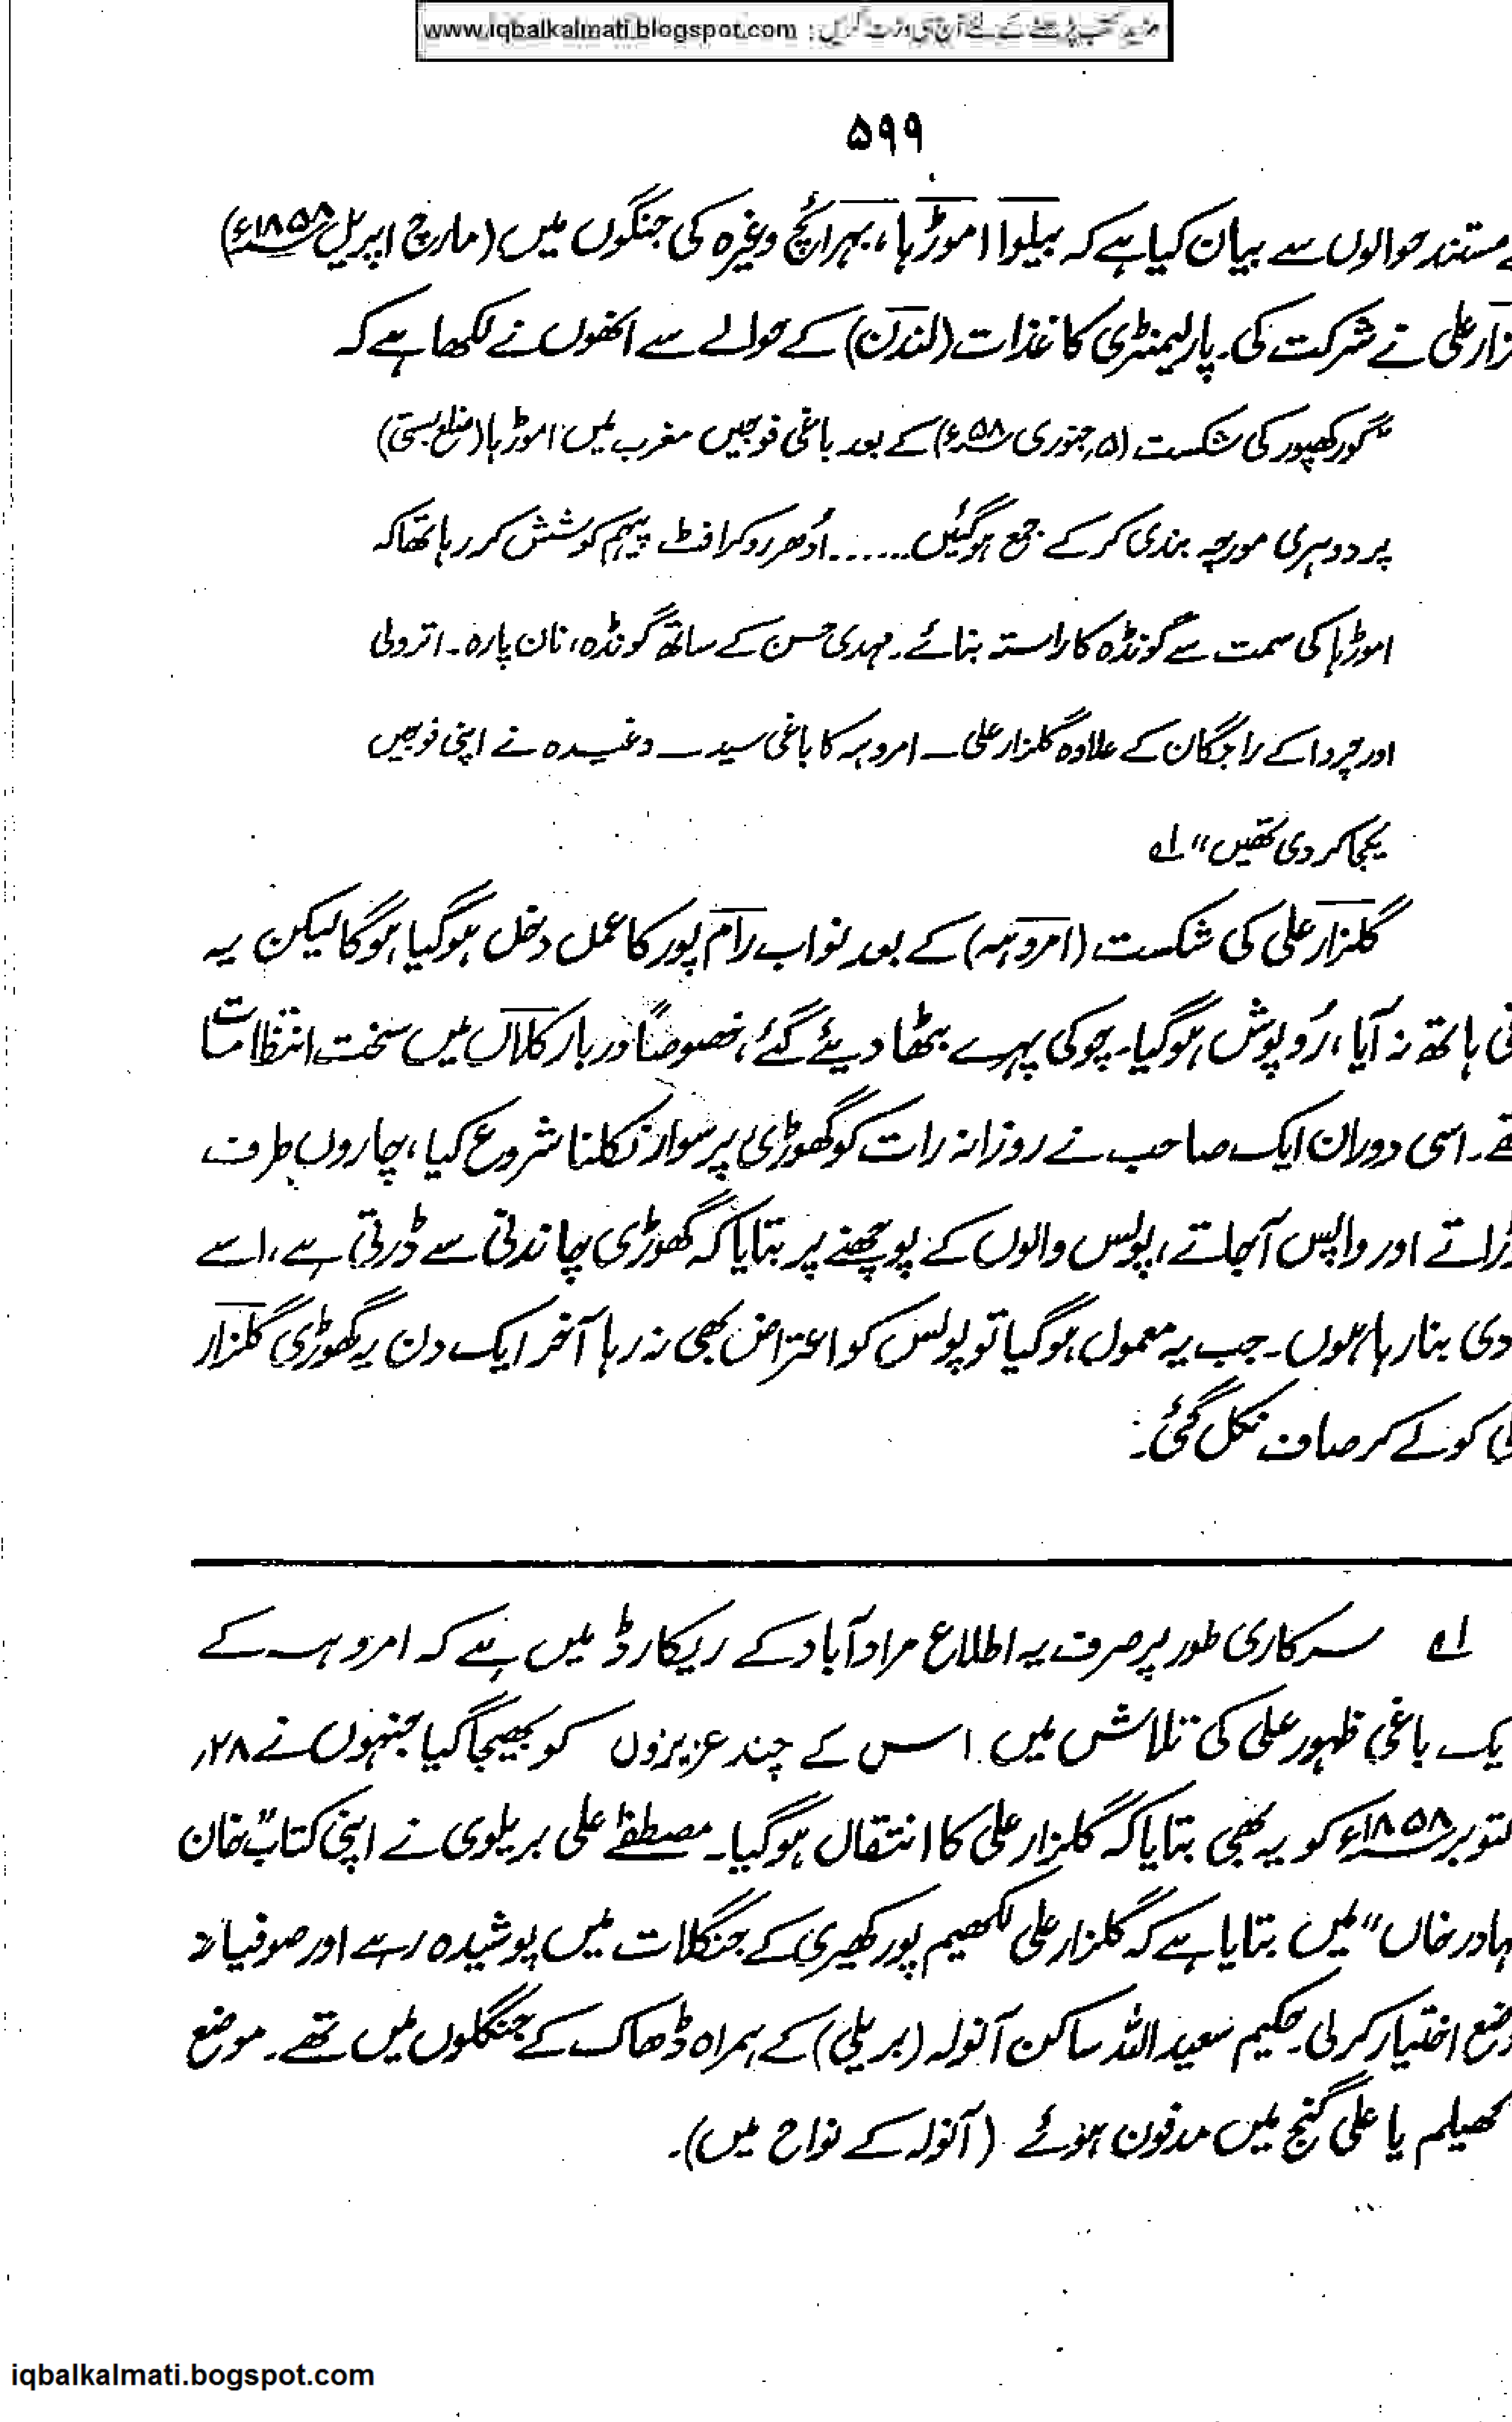 مزید کتب پڑھنے کے لئے آج ہی وزٹ کریں : www.iqbalkalmati.blogspot.com
۵۹۹
مستند حوالوں سے بیان کیا ہے کہ بیلوا اموڑہا، بہرائچ وغیرہ کی جنگوں میں (مارچ اپریل ۱۸۵۸ء)
زار علی نے شرکت کی۔ پارلیمنٹری کاغذات (لندن) کے حوالے سے انھوں نے لکھا ہے کہ
"گورکھپور کی شکست (۵؍جنوری ۵۸ء) کے بعد باغی فوجیں مغرب میں اموڑہا (ضلع بستی)
پر دوہری مورچہ بندی کر کے جمع ہوگئیں...... اُدھر روکرافٹ پیہم کوشش کر رہا تھا کہ
اموڑہا کی سمت سے گونڈہ کا راستہ بنائے۔ مہدی حسن کے ساتھ گونڈہ، نان پارہ۔ اترولی
اور چردا کے راجگان کے علاوہ گلزار علی ــ امروہہ کا باغی سید ــ وغیرہ نے اپنی فوجیں
یکجا کر دی تھیں" ۱ے
گلزار علی کی شکست (امروہہ) کے بعد نواب رام پور کا عمل دخل ہوگیا ہوگا لیکن یہ
ہاتھ نہ آیا، رُوپوش ہوگیا۔ چوکی پہرے بٹھا دیئے گئے، خصوصاً دربار کلاں میں سخت انتظامات
تھے۔ اسی دوران ایک صاحب نے روزانہ رات کو گھوڑی پر سوار نکلنا شروع کیا، چاروں طرف
اور واپس آجاتے، پولس والوں کے پوچھنے پر بتایا کہ گھوڑی چاندنی سے ڈرتی ہے، اسے
دی بنا رہا ہوں۔ جب یہ معمول ہوگیا تو پولس کو اعتراض بھی نہ رہا آخر ایک دن یہ گھوڑی گلزار
کو لے کر صاف نکل گئی۔
۱ے سرکاری طور پر صرف یہ اطلاع مرادآباد کے ریکارڈ میں ہے کہ امروہہ کے
یک باغی ظہور علی کی تلاش میں اس کے چند عزیزوں کو بھیجا گیا جنہوں نے ۲۸؍
کتوبر ۱۸۵۸ء کو یہ بھی بتایا کہ گلزار علی کا انتقال ہوگیا۔ مصطفےٰ علی بریلوی نے اپنی کتاب "خان
ہادر خاں" میں بتایا ہے کہ گلزار علی لکھیم پور کھیری کے جنگلات میں پوشیدہ رہے اور صوفیانہ
وضع اختیار کرلی۔ حکیم سعید اللہ ساکن آنولہ (بریلی) کے ہمراہ ڈھاک کے جنگلوں میں تھے۔ موضع
کھیلم یا علی گنج میں مدفون ہوئے (آنولہ کے نواح میں)۔
iqbalkalmati.bogspot.com